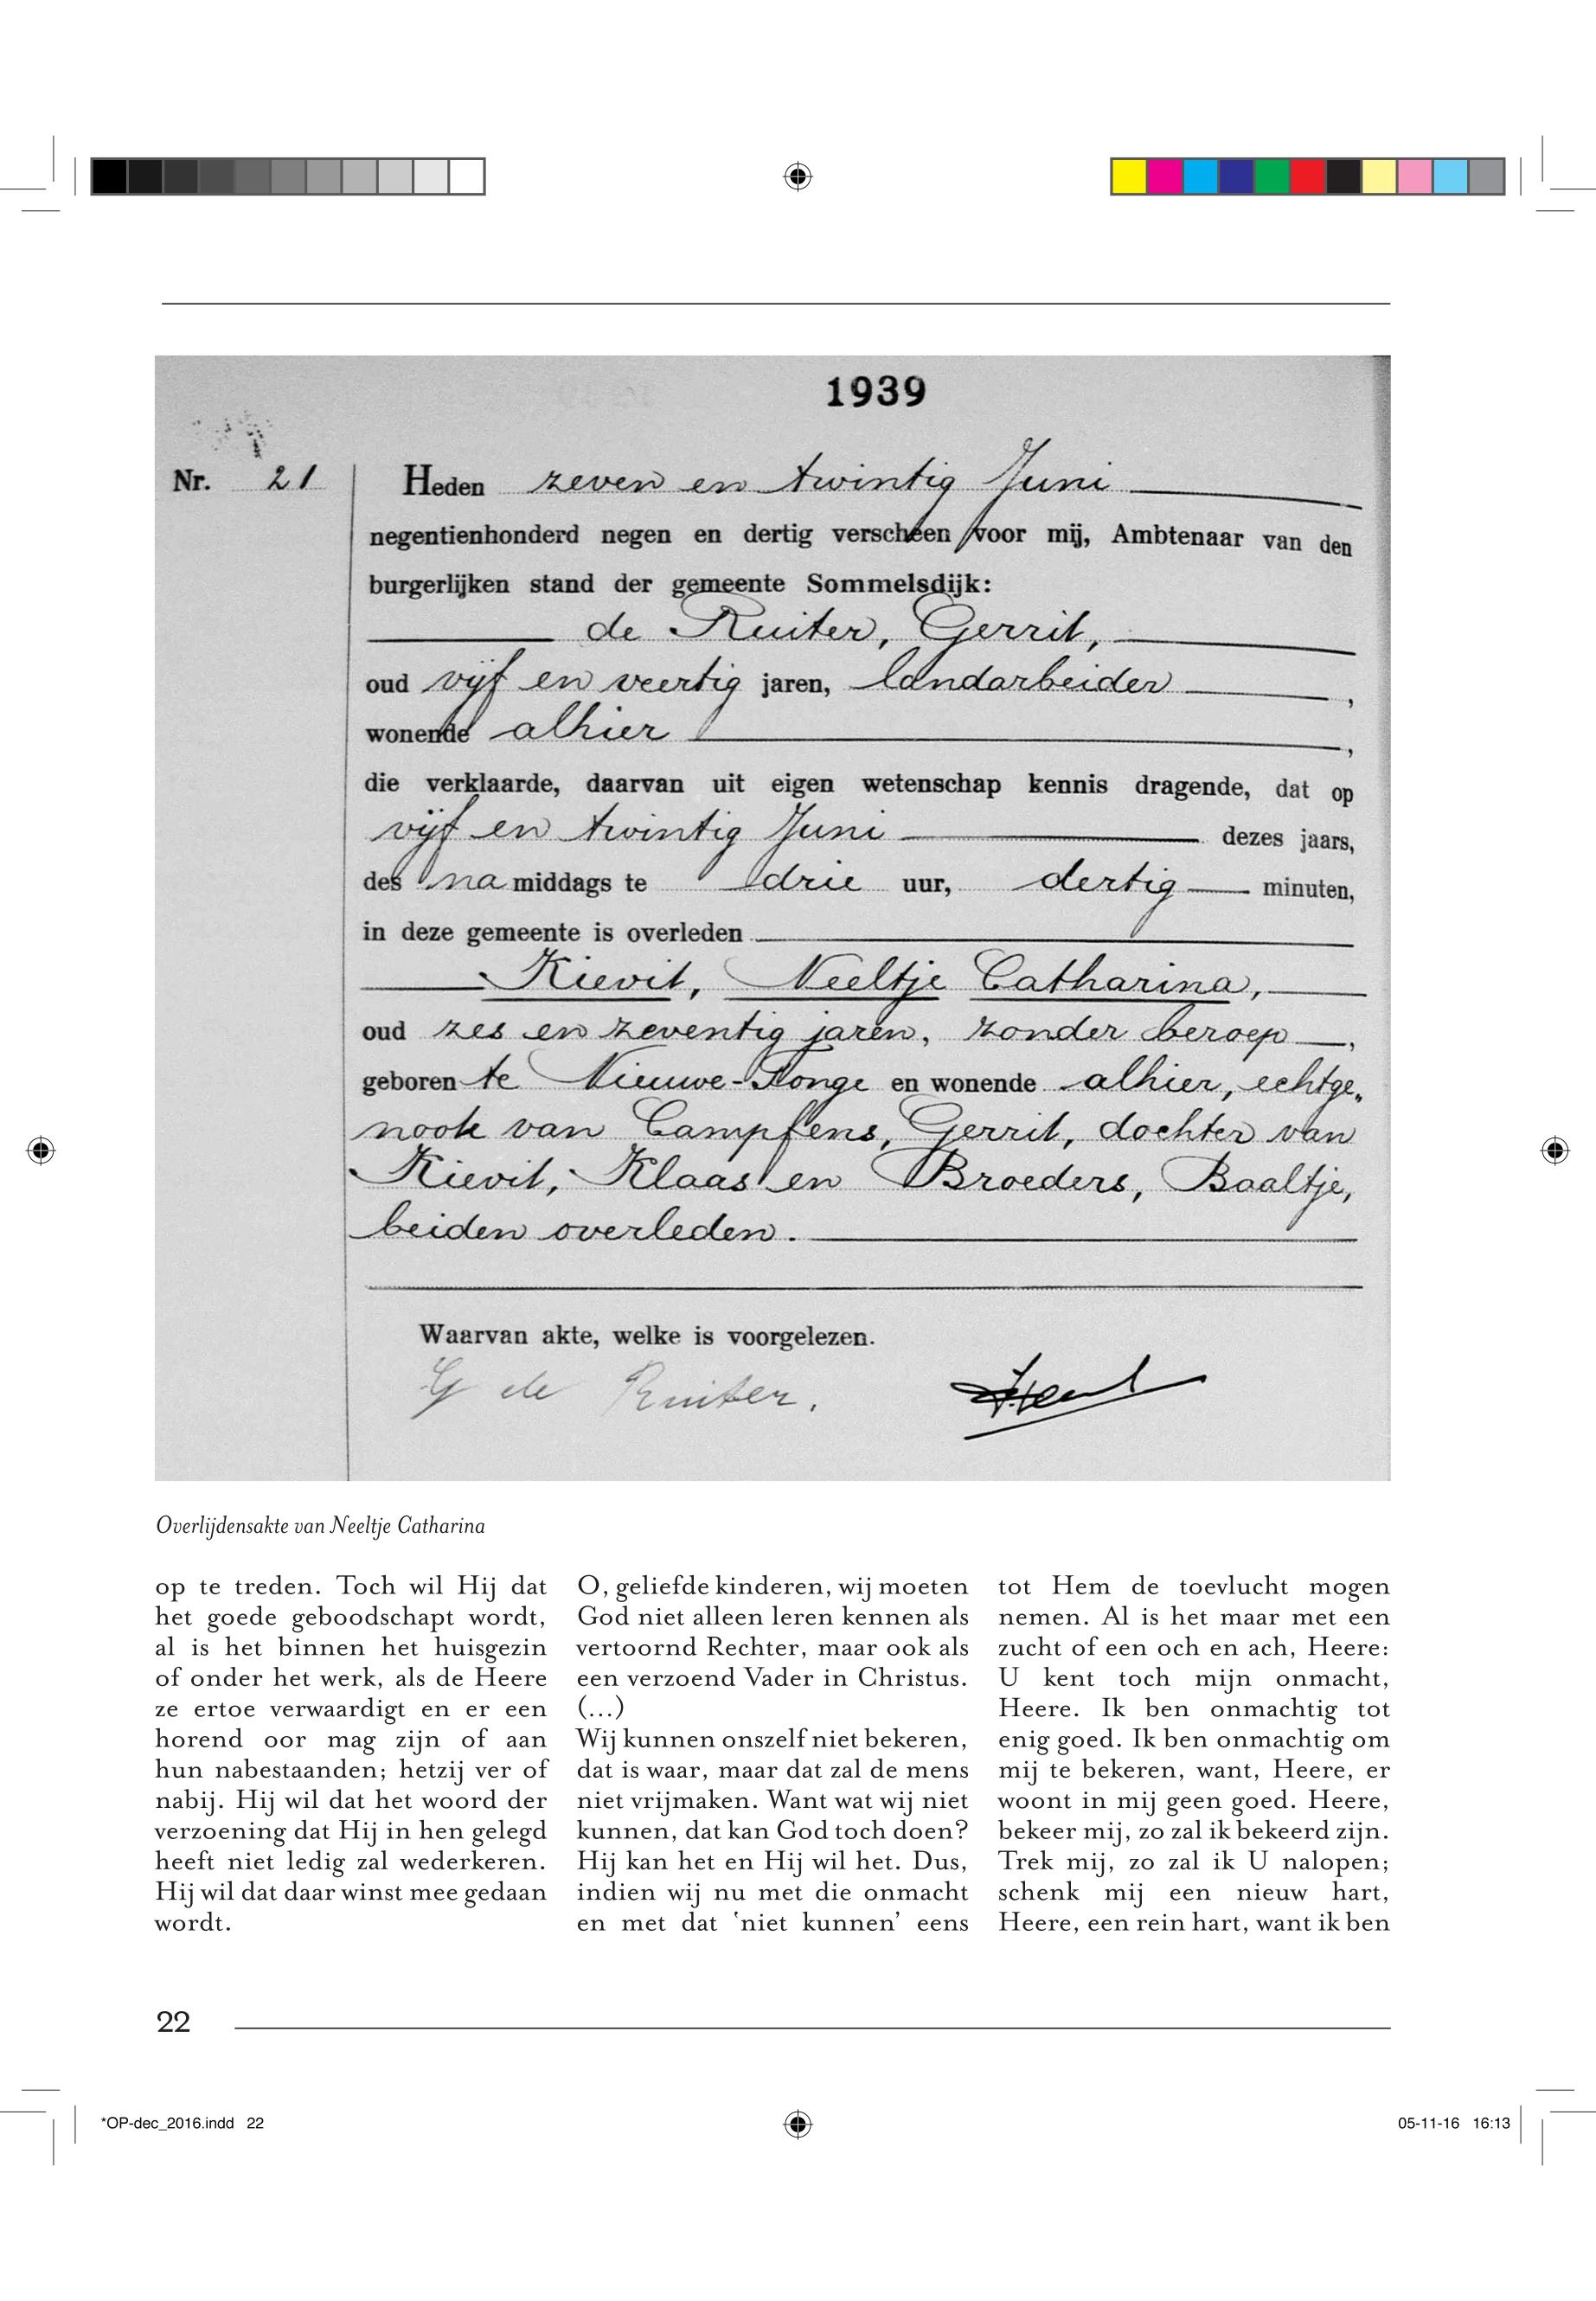 1939
Nr. 21
Heden zeven en twintig Juni
negentienhonderd negen en dertig verscheen voor mij, Ambtenaar van den
burgerlijken stand der gemeente Sommelsdijk:
de Ruiter, Gerrit,
oud vijf en veertig jaren, landarbeider,
wonende alhier,
die verklaarde, daarvan uit eigen wetenschap kennis dragende, dat op
vijf en twintig Juni dezes jaars,
des namiddags te drie uur, dertig minuten,
in deze gemeente is overleden
Kievit, Neeltje Catharina,
oud zes en zeventig jaren, zonder beroep,
geboren te Nieuwe-Tonge en wonende alhier, echtge„
noote van Campfens, Gerrit, dochter van
Kievit, Klaas en Broeders, Baaltje,
beiden overleden.
Waarvan akte, welke is voorgelezen.
G de Ruiter.
Overlijdensakte van Neeltje Catharina
op te treden. Toch wil Hij dat
het goede geboodschapt wordt,
al is het binnen het huisgezin
of onder het werk, als de Heere
ze ertoe verwaardigt en er een
horend oor mag zijn of aan
hun nabestaanden; hetzij ver of
nabij. Hij wil dat het woord der
verzoening dat Hij in hen gelegd
heeft niet ledig zal wederkeren.
Hij wil dat daar winst mee gedaan
wordt.
O, geliefde kinderen, wij moeten
God niet alleen leren kennen als
vertoornd Rechter, maar ook als
een verzoend Vader in Christus.
(...)
Wij kunnen onszelf niet bekeren,
dat is waar, maar dat zal de mens
niet vrijmaken. Want wat wij niet
kunnen, dat kan God toch doen?
Hij kan het en Hij wil het. Dus,
indien wij nu met die onmacht
en met dat ‛niet kunnen’ eens
tot Hem de toevlucht mogen
nemen. Al is het maar met een
zucht of een och en ach, Heere:
U kent toch mijn onmacht,
Heere. Ik ben onmachtig tot
enig goed. Ik ben onmachtig om
mij te bekeren, want, Heere, er
woont in mij geen goed. Heere,
bekeer mij, zo zal ik bekeerd zijn.
Trek mij, zo zal ik U nalopen;
schenk mij een nieuw hart,
Heere, een rein hart, want ik ben
22
*OP-dec_2016.indd 22
05-11-16 16:13